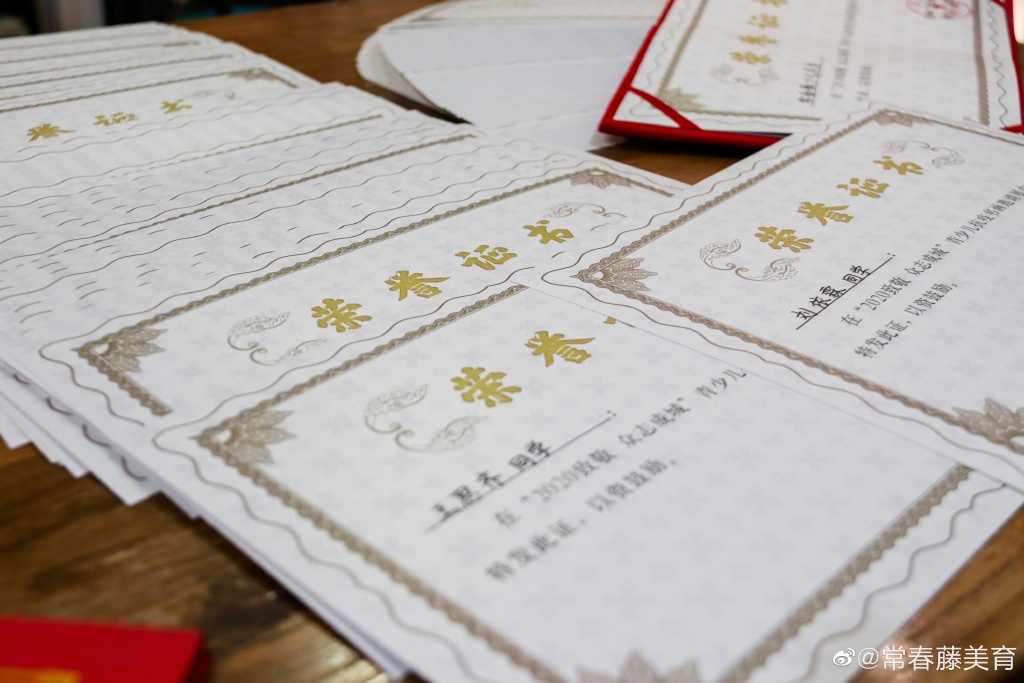 誉证书
荣誉证书
荣誉证书
荣誉证书
刘依霖 同学 :
在“2020致敬 众志成城”青少儿抗疫书画邀请
特发此证，以资鼓励。
荣誉
王思齐 同学 :
在“2020致敬 众志成城”青少儿
特发此证，以资鼓励。
@常春藤美育